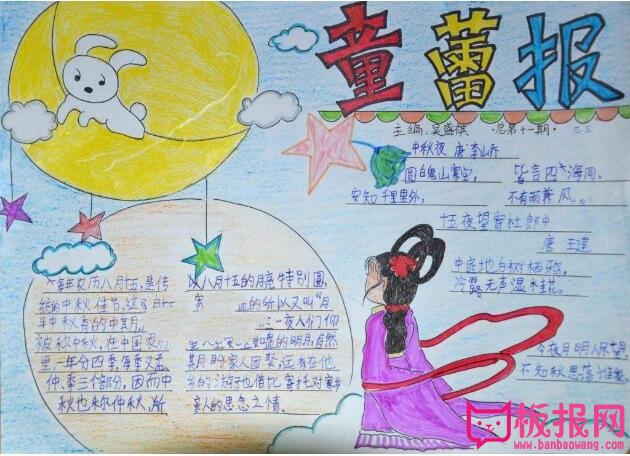 童蕾报
主编:吴盛祺 ·总第十一期·
中秋夜 唐 李山乔
圆魄山寒空, 皆言四海同。
安知千里外, 不有雨兼风。
十五夜望寄杜郎中
唐 王建
中庭地白树栖鸦,
冷露无声湿桂花。
今夜月明人尽望,
不知秋思落
每年农历八月十五,是传
统的中秋佳节,这
年中秋
被称中秋,在中国农
里,一年分四季,每季又孟、
仲、季三个部分,因而中
秋也称仲秋,所
以八月十五的月亮特别圆,
的所以又叫"月
一夜人们仰
的明月,自然
期盼家人团聚,远在他
乡的游子也借此寄托对家乡
亲人的思念之情。
板报网
www.banbaowang.com